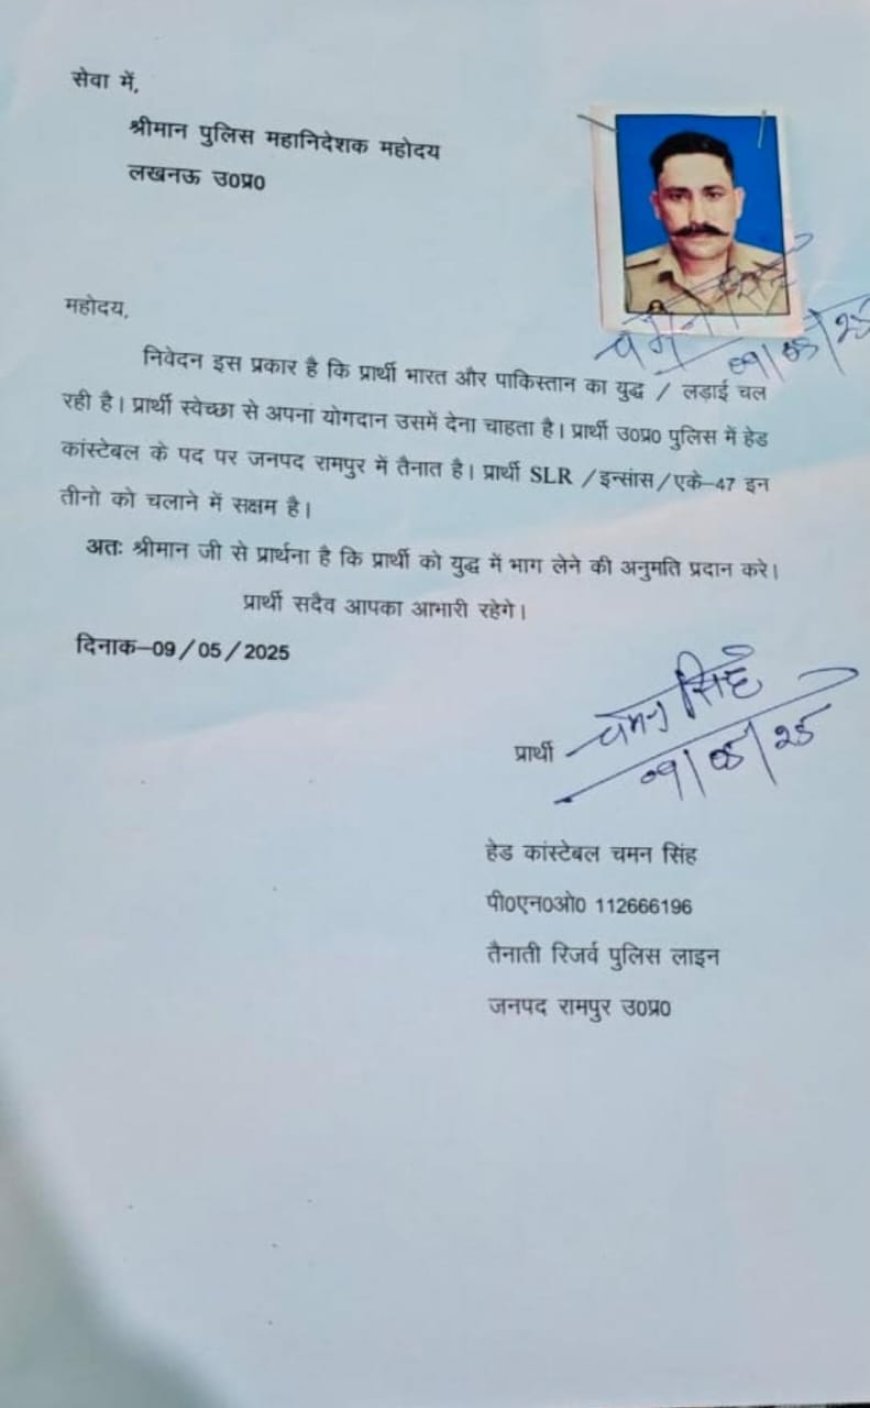 सेवा में,
श्रीमान पुलिस महानिदेशक महोदय
लखनऊ उ0प्र0
चमन सिंह
09/05/25
महोदय,
निवेदन इस प्रकार है कि प्रार्थी भारत और पाकिस्तान का युद्ध / लड़ाई चल
रही है। प्रार्थी स्वेच्छा से अपना योगदान उसमें देना चाहता है। प्रार्थी उ0प्र0 पुलिस में हेड
कांस्टेबल के पद पर जनपद रामपुर में तैनात है। प्रार्थी SLR /इन्सांस/एके–47 इन
तीनो को चलाने में सक्षम है।
अतः श्रीमान जी से प्रार्थना है कि प्रार्थी को युद्ध में भाग लेने की अनुमति प्रदान करे।
प्रार्थी सदैव आपका आभारी रहेगे।
दिनाक–09/05/2025
चमन सिंह
प्रार्थी
09/05/25
हेड कांस्टेबल चमन सिंह
पी0एन0ओ0 112666196
तैनाती रिजर्व पुलिस लाइन
जनपद रामपुर उ0प्र0